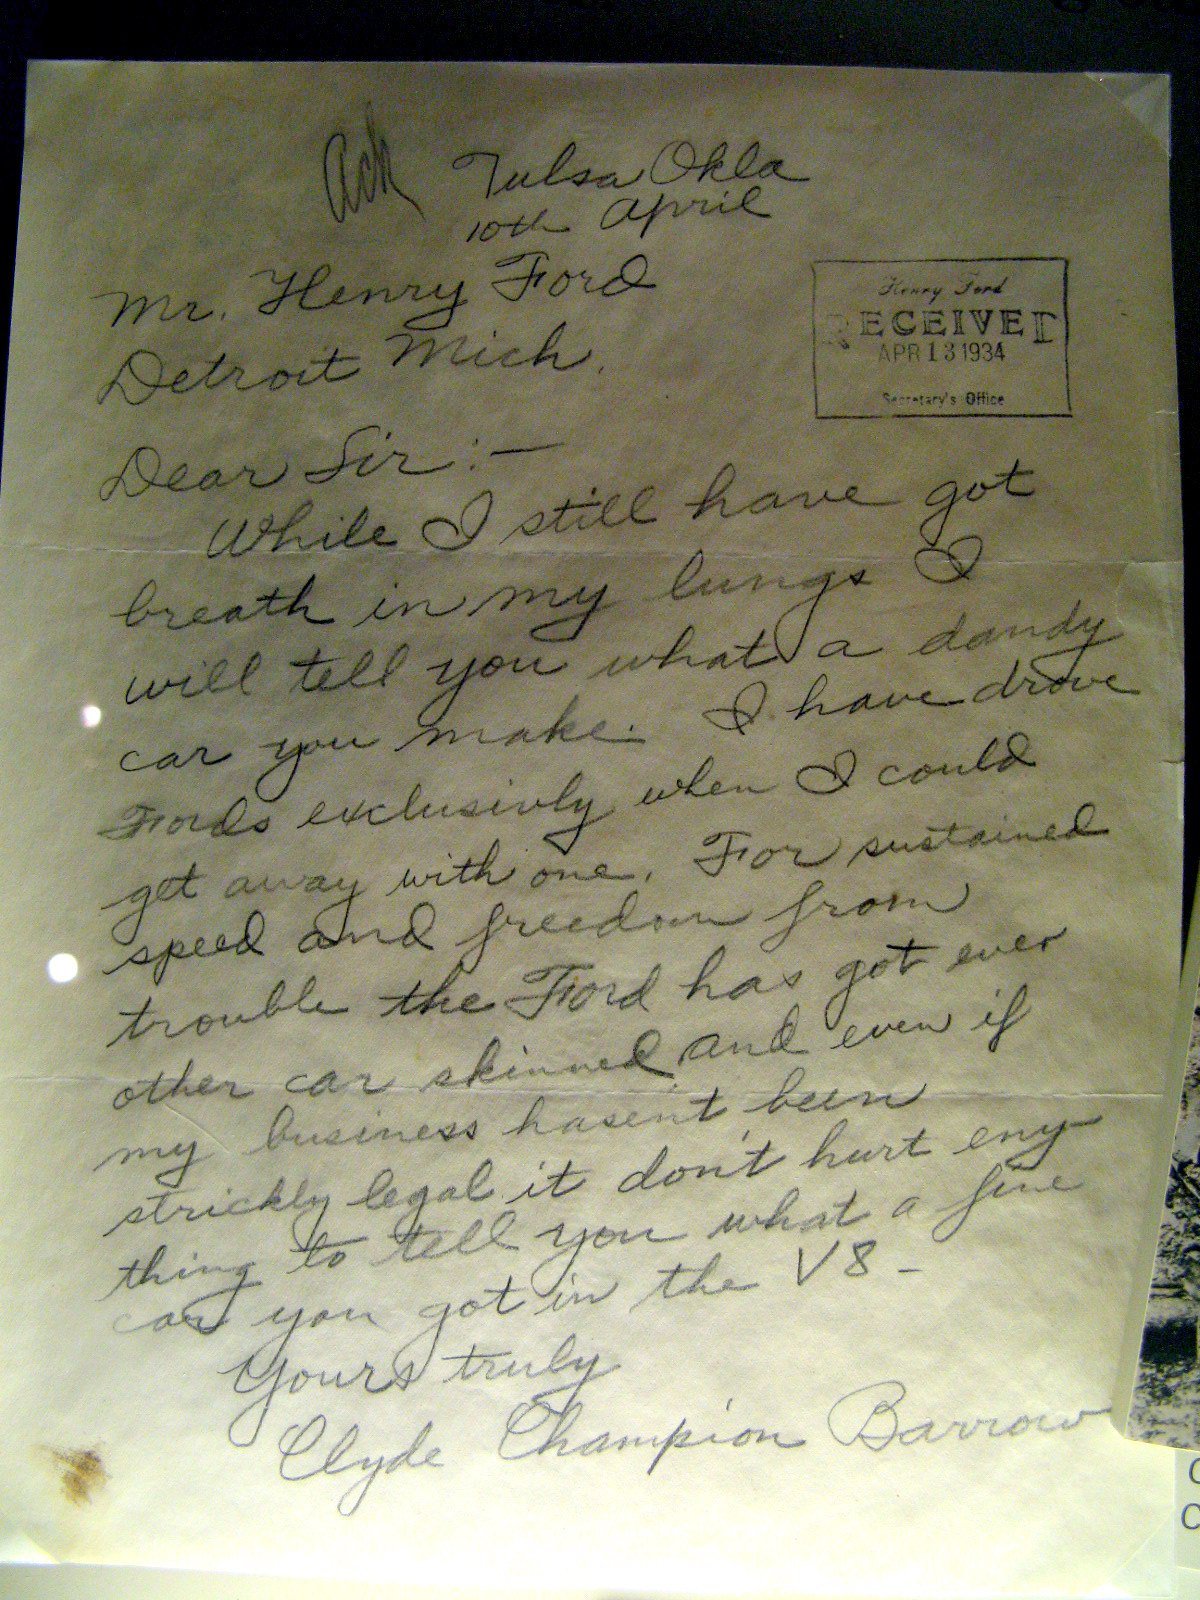 Ack
Tulsa Okla
10th April
Mr. Henry Ford
Detroit Mich.
Henry Ford
RECEIVED
APR 13 1934
Secretary's Office
Dear Sir:—
While I still have got
breath in my lungs I
will tell you what a dandy
car you make. I have drove
Fords exclusivly when I could
get away with one. For sustained
speed and freedom from
trouble the Ford has got ever
other car skinned and even if
my business hasen't been
strickly legal it don't hurt eny
thing to tell you what a fine
car you got in the V8 –
Yours truly
Clyde Champion Barrow